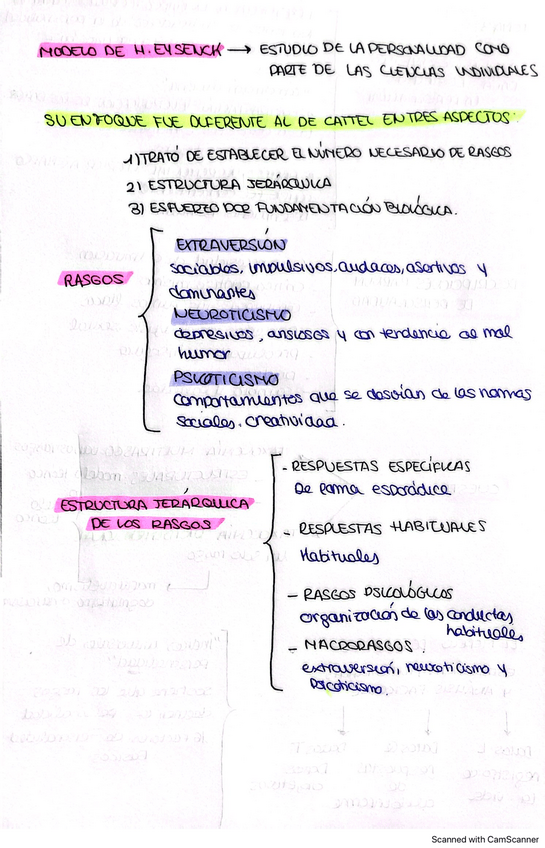 MODELO DE H. EYSENCK → ESTUDIO DE LA PERSONALIDAD COMO
PARTE DE LAS CIENCIAS INDIVIDUALES
SU ENFOQUE FUE DIFERENTE AL DE CATTEL EN TRES ASPECTOS:
1) TRATÓ DE ESTABLECER EL NÚMERO NECESARIO DE RASGOS
2) ESTRUCTURA JERÁRQUICA
3) ESFUERZO POR FUNDAMENTACIÓN BIOLÓGICA.
RASGOS
EXTRAVERSIÓN
sociables, impulsivos, audaces, asertivos y
dominantes
NEUROTICISMO
depresivos, ansiosos y con tendencia al mal
humor
PSICOTICISMO
comportamientos que se desvían de las normas
sociales. creatividad.
ESTRUCTURA JERÁRQUICA
DE LOS RASGOS
- RESPUESTAS ESPECÍFICAS
De forma esporádica
- RESPUESTAS HABITUALES
Habituales
- RASGOS PSICOLÓGICOS
organización de las conductas
habituales
- MACRORASGOS.
extraversión, neuroticismo y
Psicoticismo.
Scanned with CamScanner